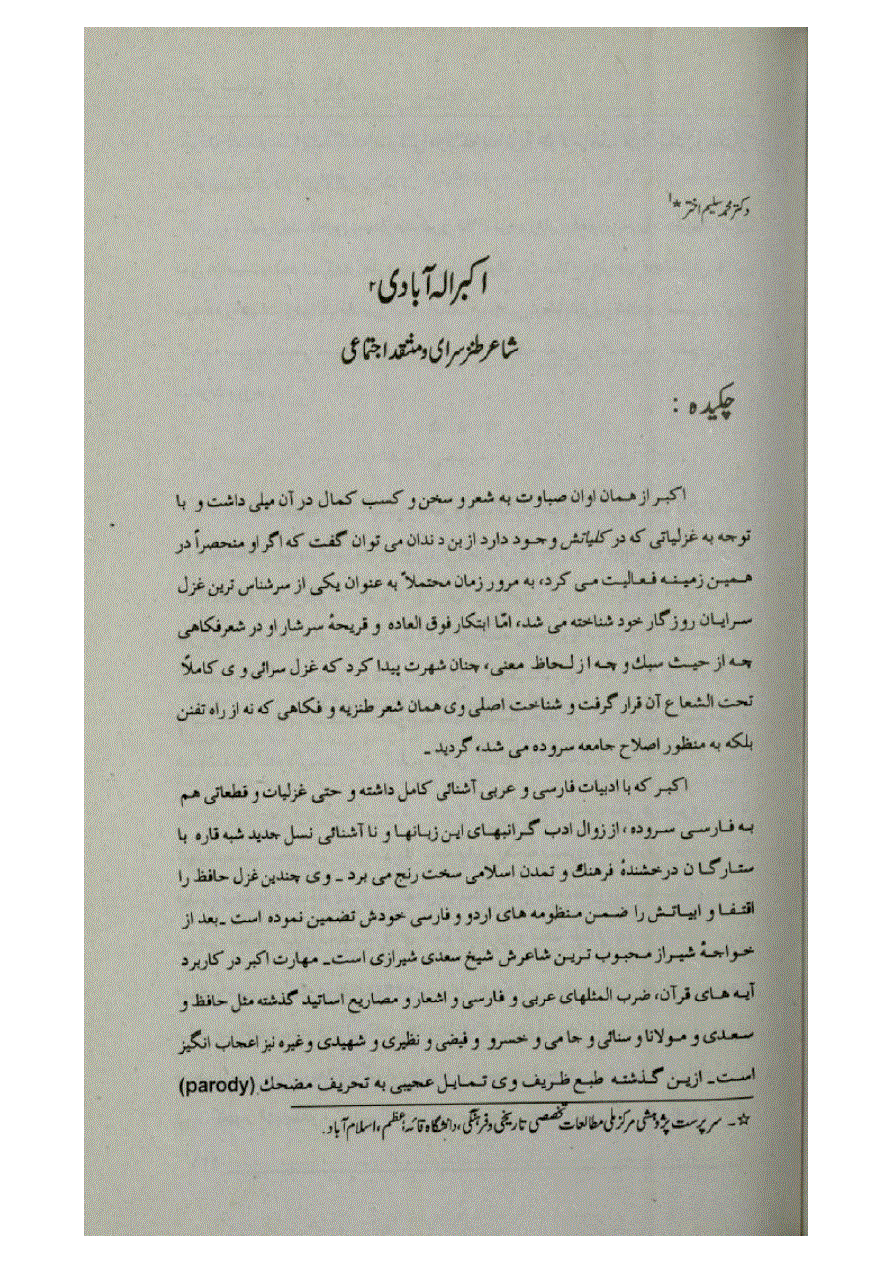 دکتر محمد سلیم اختر *۱
اکبر اله آبادی ۲
شاعر طنز سرای و منتقد اجتماعی
چکیده :
اکبر از همان اوان صباوت به شعر و سخن و کسب کمال در آن میلی داشت و با
توجه به غزلیاتی که در کلیاتش وجود دارد از بن دندان می توان گفت که اگر او منحصراً در
همین زمینه فعالیت می کرد، به مرور زمان محتملاً به عنوان یکی از سرشناس ترین غزل
سرایان روزگار خود شناخته می شد، امّا ابتکار فوق العاده و قریحهٔ سرشار او در شعر فکاهی
چه از حیث سبک و چه از لحاظ معنی، چنان شهرت پیدا کرد که غزل سرائی وی کاملاً
تحت الشعاع آن قرار گرفت و شناخت اصلی وی همان شعر طنزیه و فکاهی که نه از راه تفنن
بلکه به منظور اصلاح جامعه سروده می شد، گردید ـ
اکبر که با ادبیات فارسی و عربی آشنائی کامل داشته و حتی غزلیات و قطعاتی هم
به فارسی سروده ، از زوال ادب گرانبهای این زبانها و نا آشنائی نسل جدید شبه قاره با
ستارگان درخشندهٔ فرهنگ و تمدن اسلامی سخت رنج می برد ـ وی چندین غزل حافظ را
اقتفا و ابیاتش را ضمن منظومه های اردو و فارسی خودش تضمین نموده است ـ بعد از
خواجهٔ شیراز محبوب ترین شاعرش شیخ سعدی شیرازی است ـ مهارت اکبر در کاربرد
آیه های قرآن، ضرب المثلهای عربی و فارسی و اشعار و مصاریع اساتید گذشته مثل حافظ و
سعدی و مولانا و سنائی و جامی و خسرو و فیضی و نظیری و شهیدی وغیره نیز اعجاب انگیز
است ـ ازین گذشته طبع ظریف وی تمایل عجیبی به تحریف مضحک (parody)
☆ ـ سرپرست پژوهشی مرکز ملی مطالعات تخصصی تاریخی و فرهنگی ، دانشگاه قائد اعظم ، اسلام آباد .